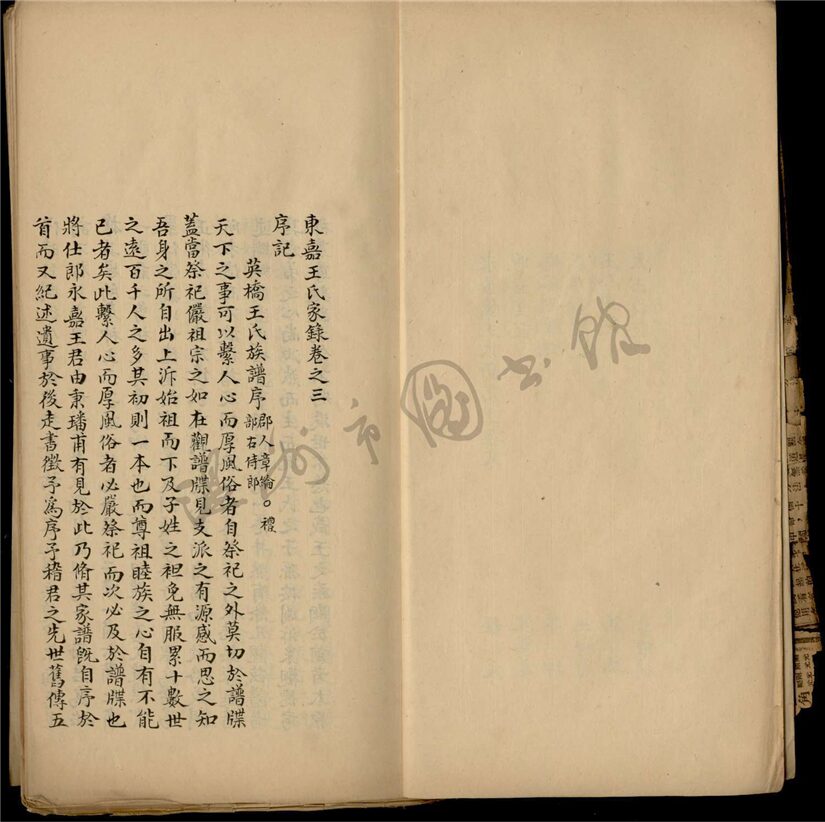 東嘉王氏家錄卷之三
序記
英橋王氏族譜序郡人章綸。禮部右侍郎
天下之事可以繫人心而厚風俗者自祭祀之外莫切於譜牒
蓋當祭祀儼祖宗之如在觀譜牒見支派之有源感而思之知
吾身之所自出上泝始祖而下及子姓之袒免無服累十數世
之遠百千人之多其初則一本也而尊祖睦族之心自有不能
已者矣此繫人心而厚風俗者必嚴祭祀而次必及於譜牒也
將仕郎永嘉王君由秉璠甫有見於此乃脩其家譜旣自序於
首而又紀述遺事於後走書徵予爲序予稽君之先世舊傳五
溫州市圖書館